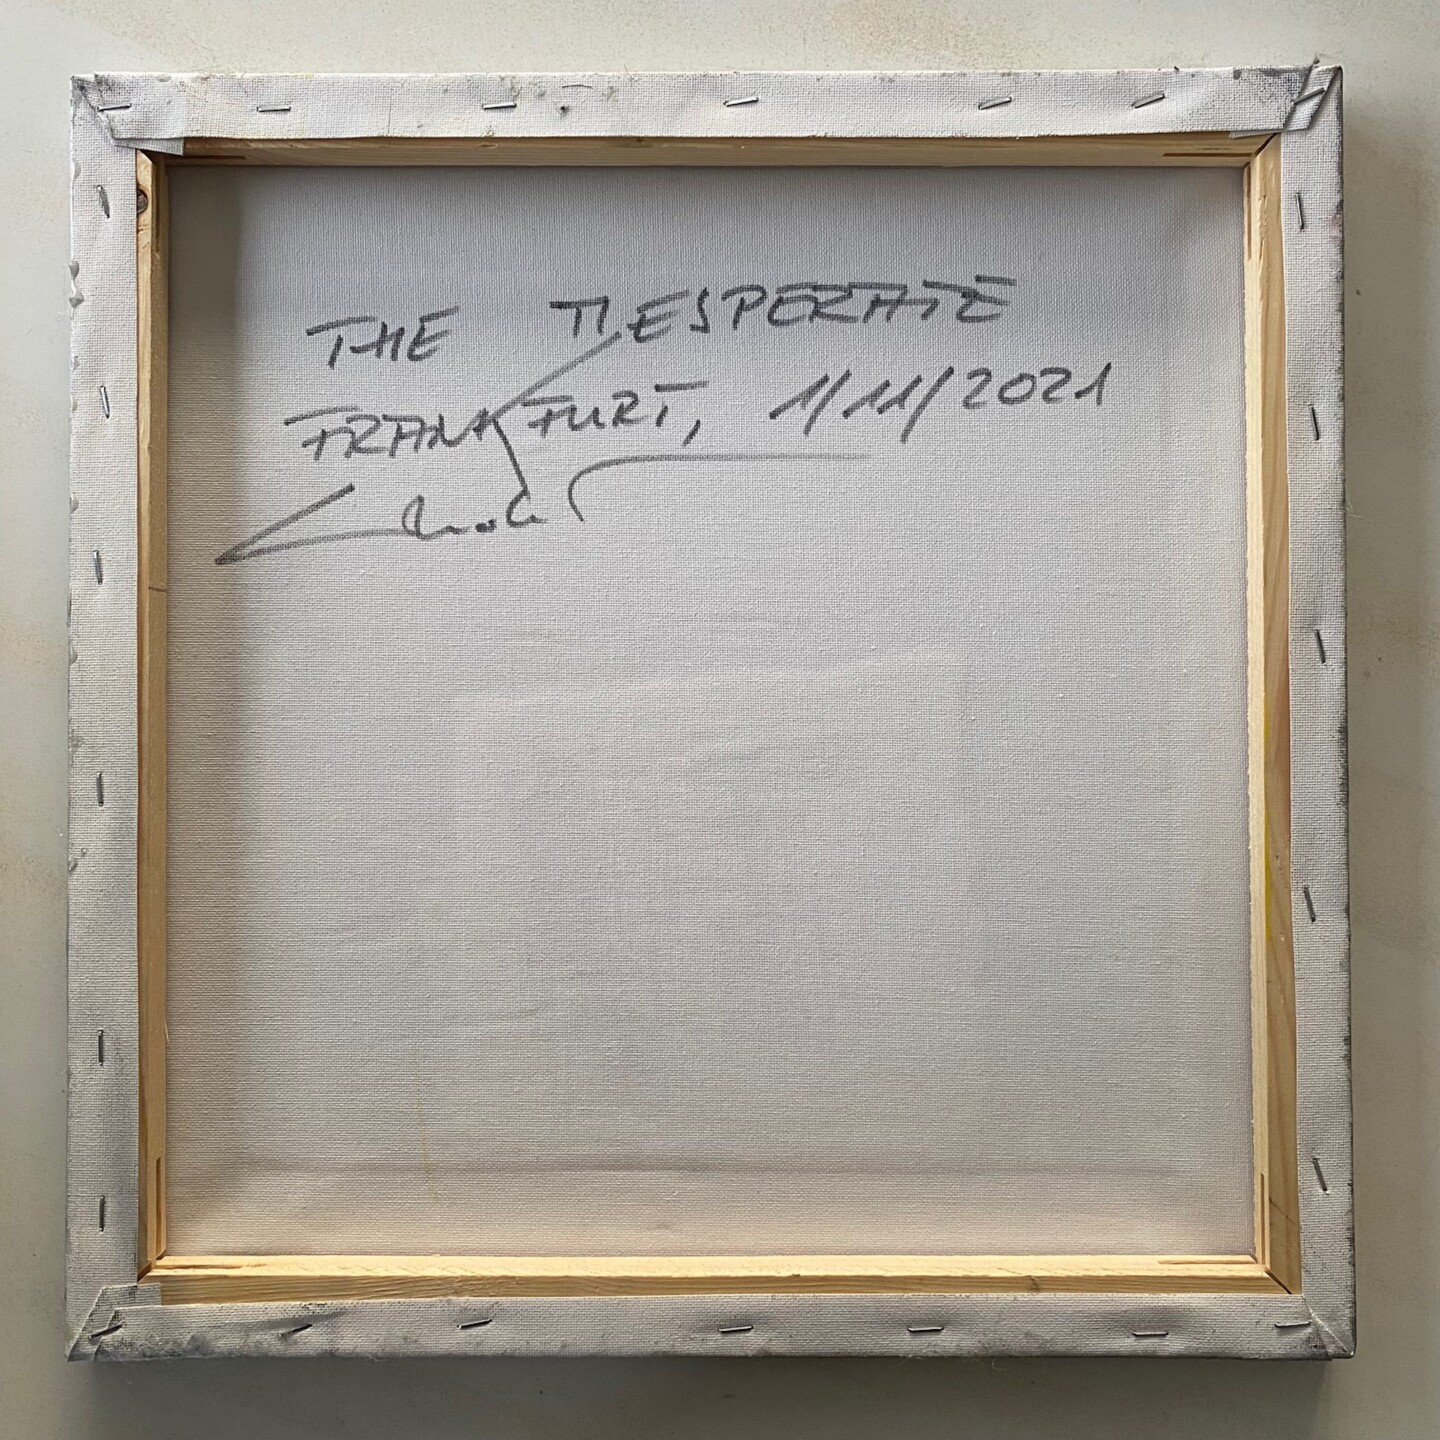 THE DESPERATE
FRANKFURT, 1/11/2021